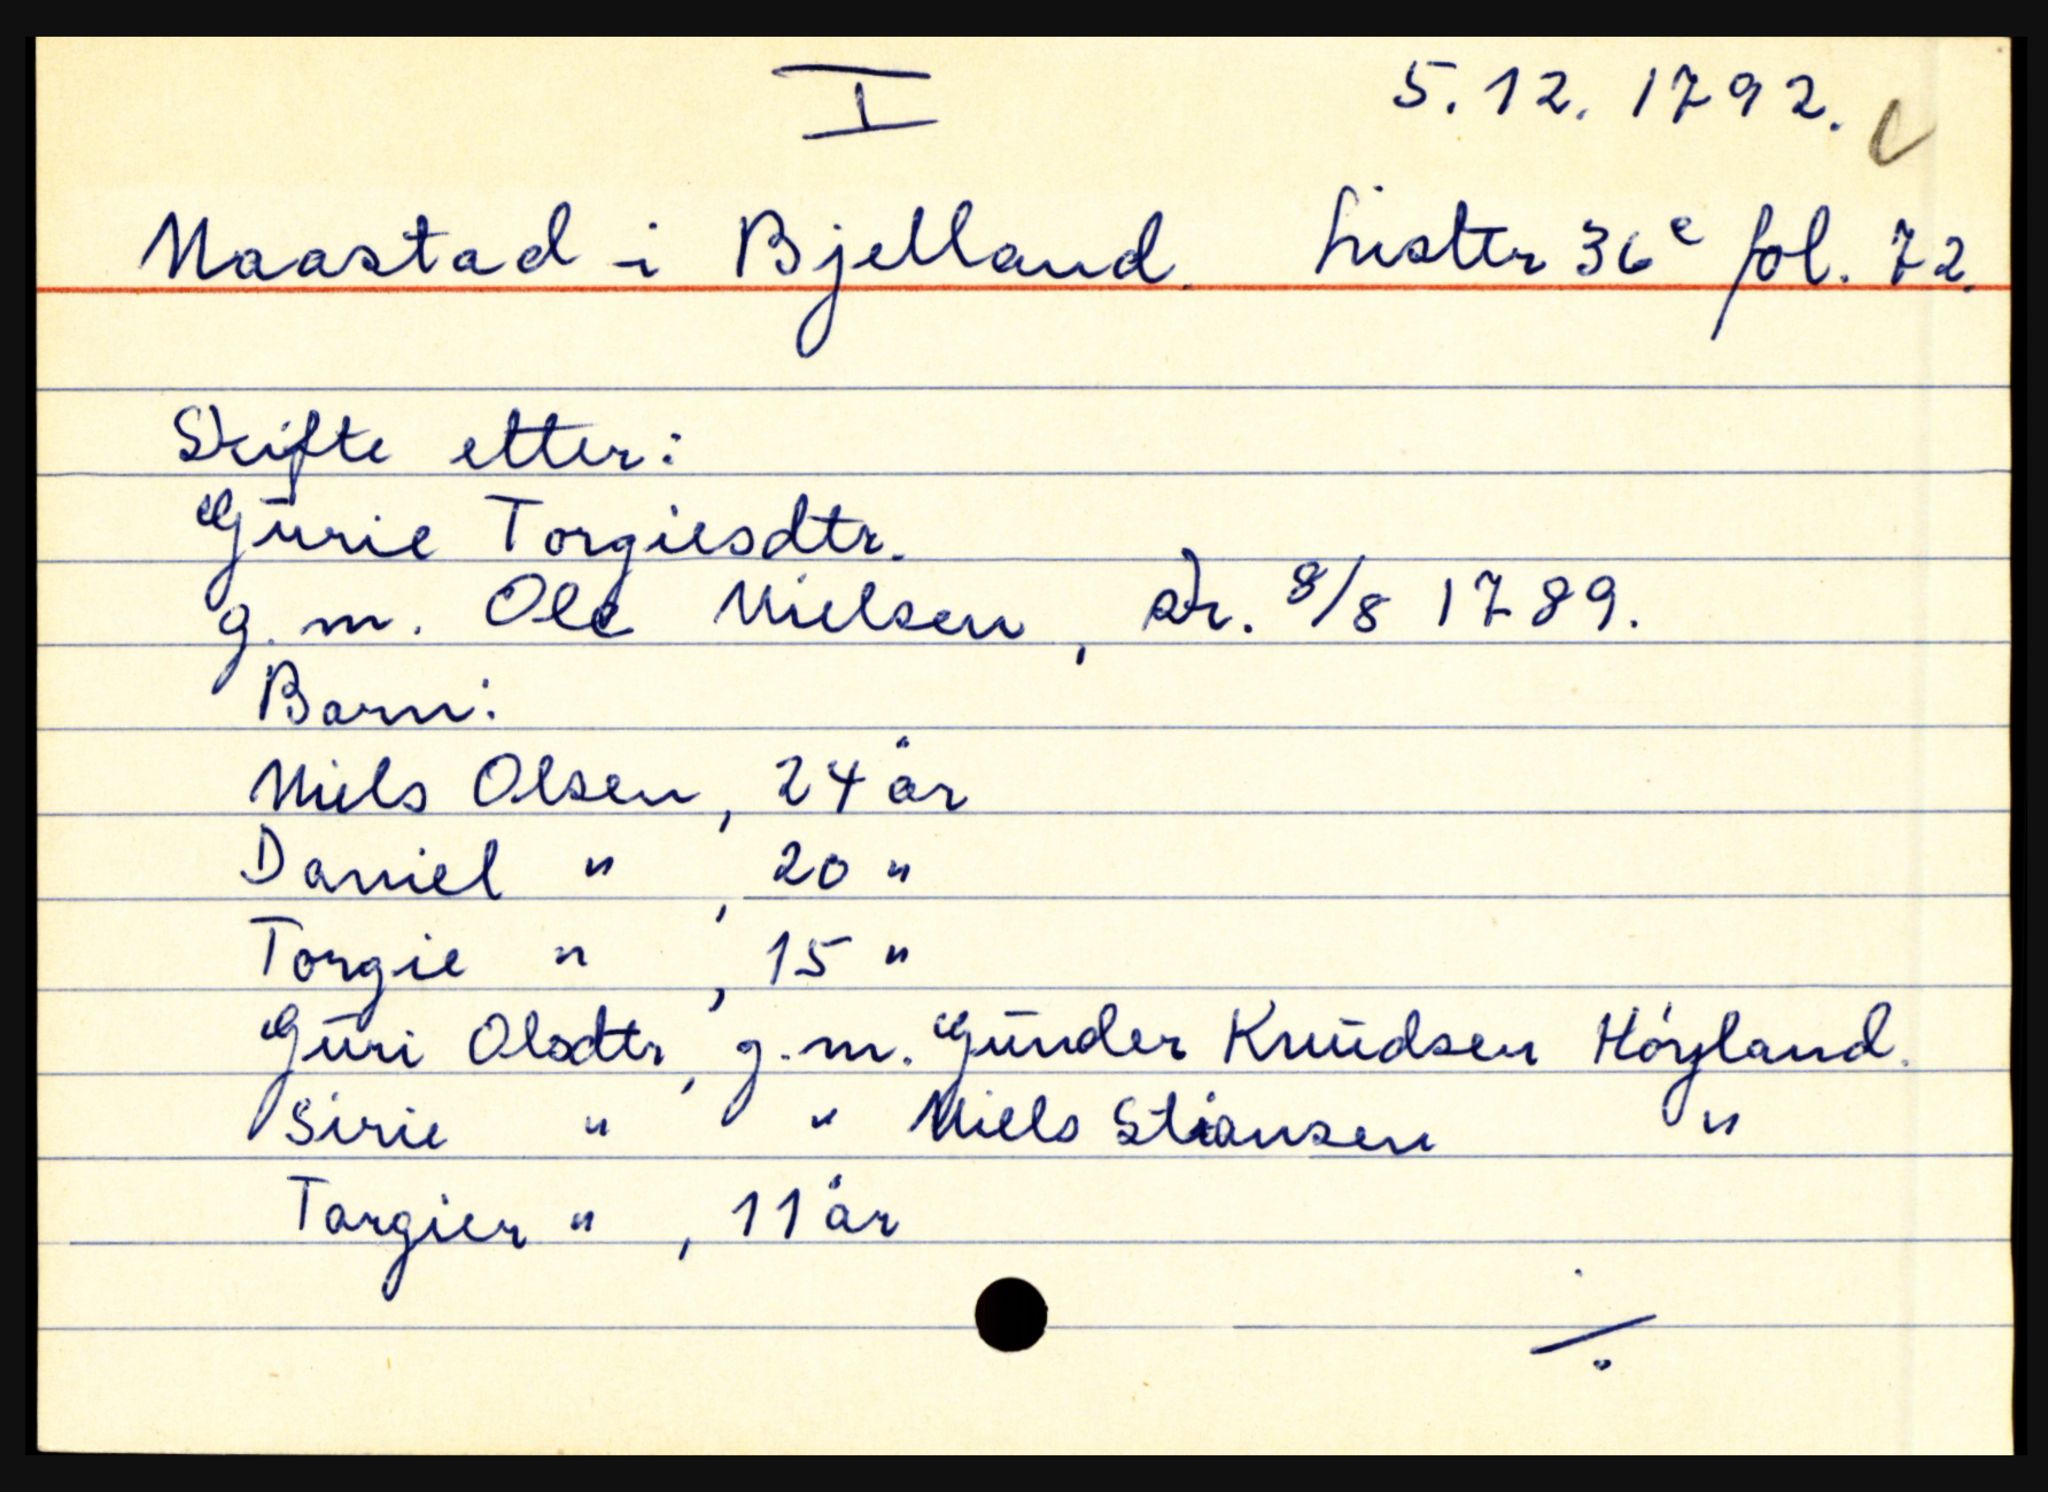 I 5.12.1792.
Maastad i Bjelland. Lister 36c fol. 72.
Skifte etter:
Gūrie Torgiesdtr.
g.m. Ole Nielsen, sk. 8/8 1789.
Barn:
Niels Olsen, 24 år
Daniel " , 20 "
Torgie " , 15 "
Gūri Olsdtr, g.m. Gūnder Knūdsen Höyland.
Sirie " " Niels Stiansen "
Targier " , 11 år
./.